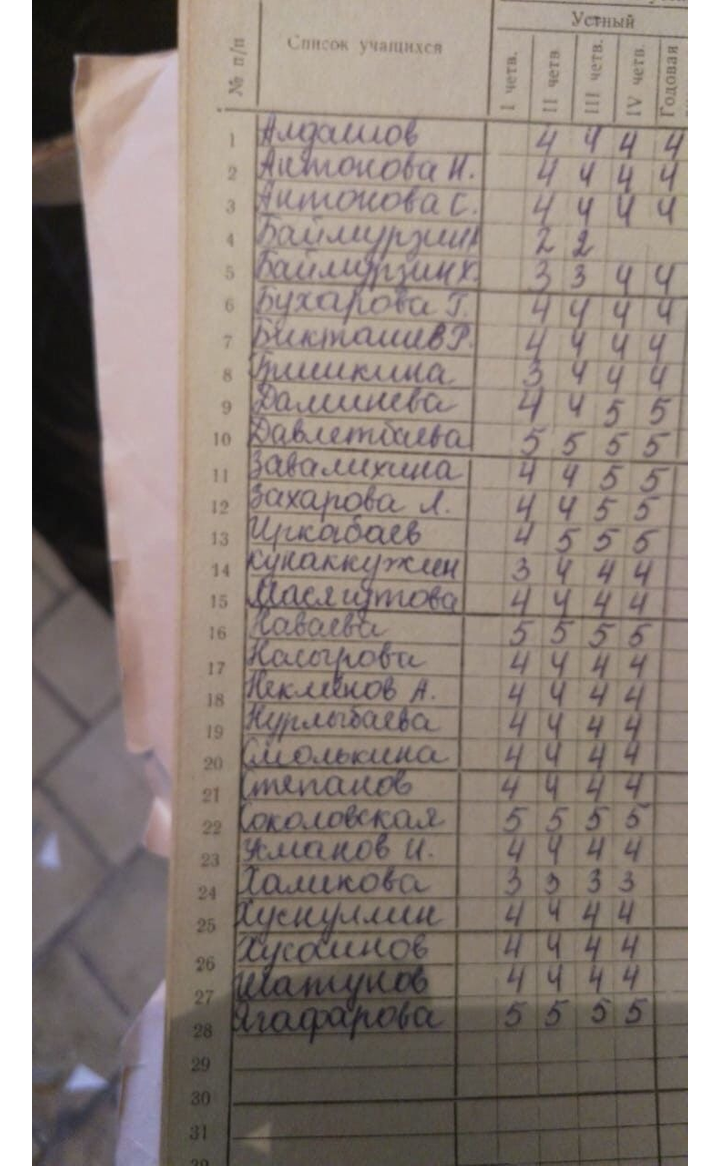 Устный
№ п/п Список учащихся I четв. II четв III четв. IV четв. Годовая
1 Алдашов 4 4 4 4
2 Антонова Н. 4 4 4 4
3 Антонова С. 4 4 4 4
4 Баймурзин 2 2
5 Баймурзин Х. 3 3 4 4
6 Бухарова Г. 4 4 4 4
7 Бикташев Р. 4 4 4 4
8 Гришкина 3 4 4 4
9 Даминева 4 4 5 5
10 Давлетбаева 5 5 5 5
11 Завалихина 4 4 5 5
12 Захарова Л. 4 4 5 5
13 Иркабаев 4 5 5 5
14 Кунаккужин 3 4 4 4
15 Масягутова 4 4 4 4
16 Наваева 5 5 5 5
17 Насырова 4 4 4 4
18 А. 4 4 4 4
19 Нурлыбаева 4 4 4 4
20 Смолькина 4 4 4 4
21 Степанов 4 4 4 4
22 Соколовская 5 5 5 5
23 Усманов И. 4 4 4 4
24 Халикова 3 3 3 3
25 Хуснуллин 4 4 4 4
26 Хусаинов 4 4 4 4
27 Шатунов 4 4 4 4
28 Ягафарова 5 5 5 5
29
30
31